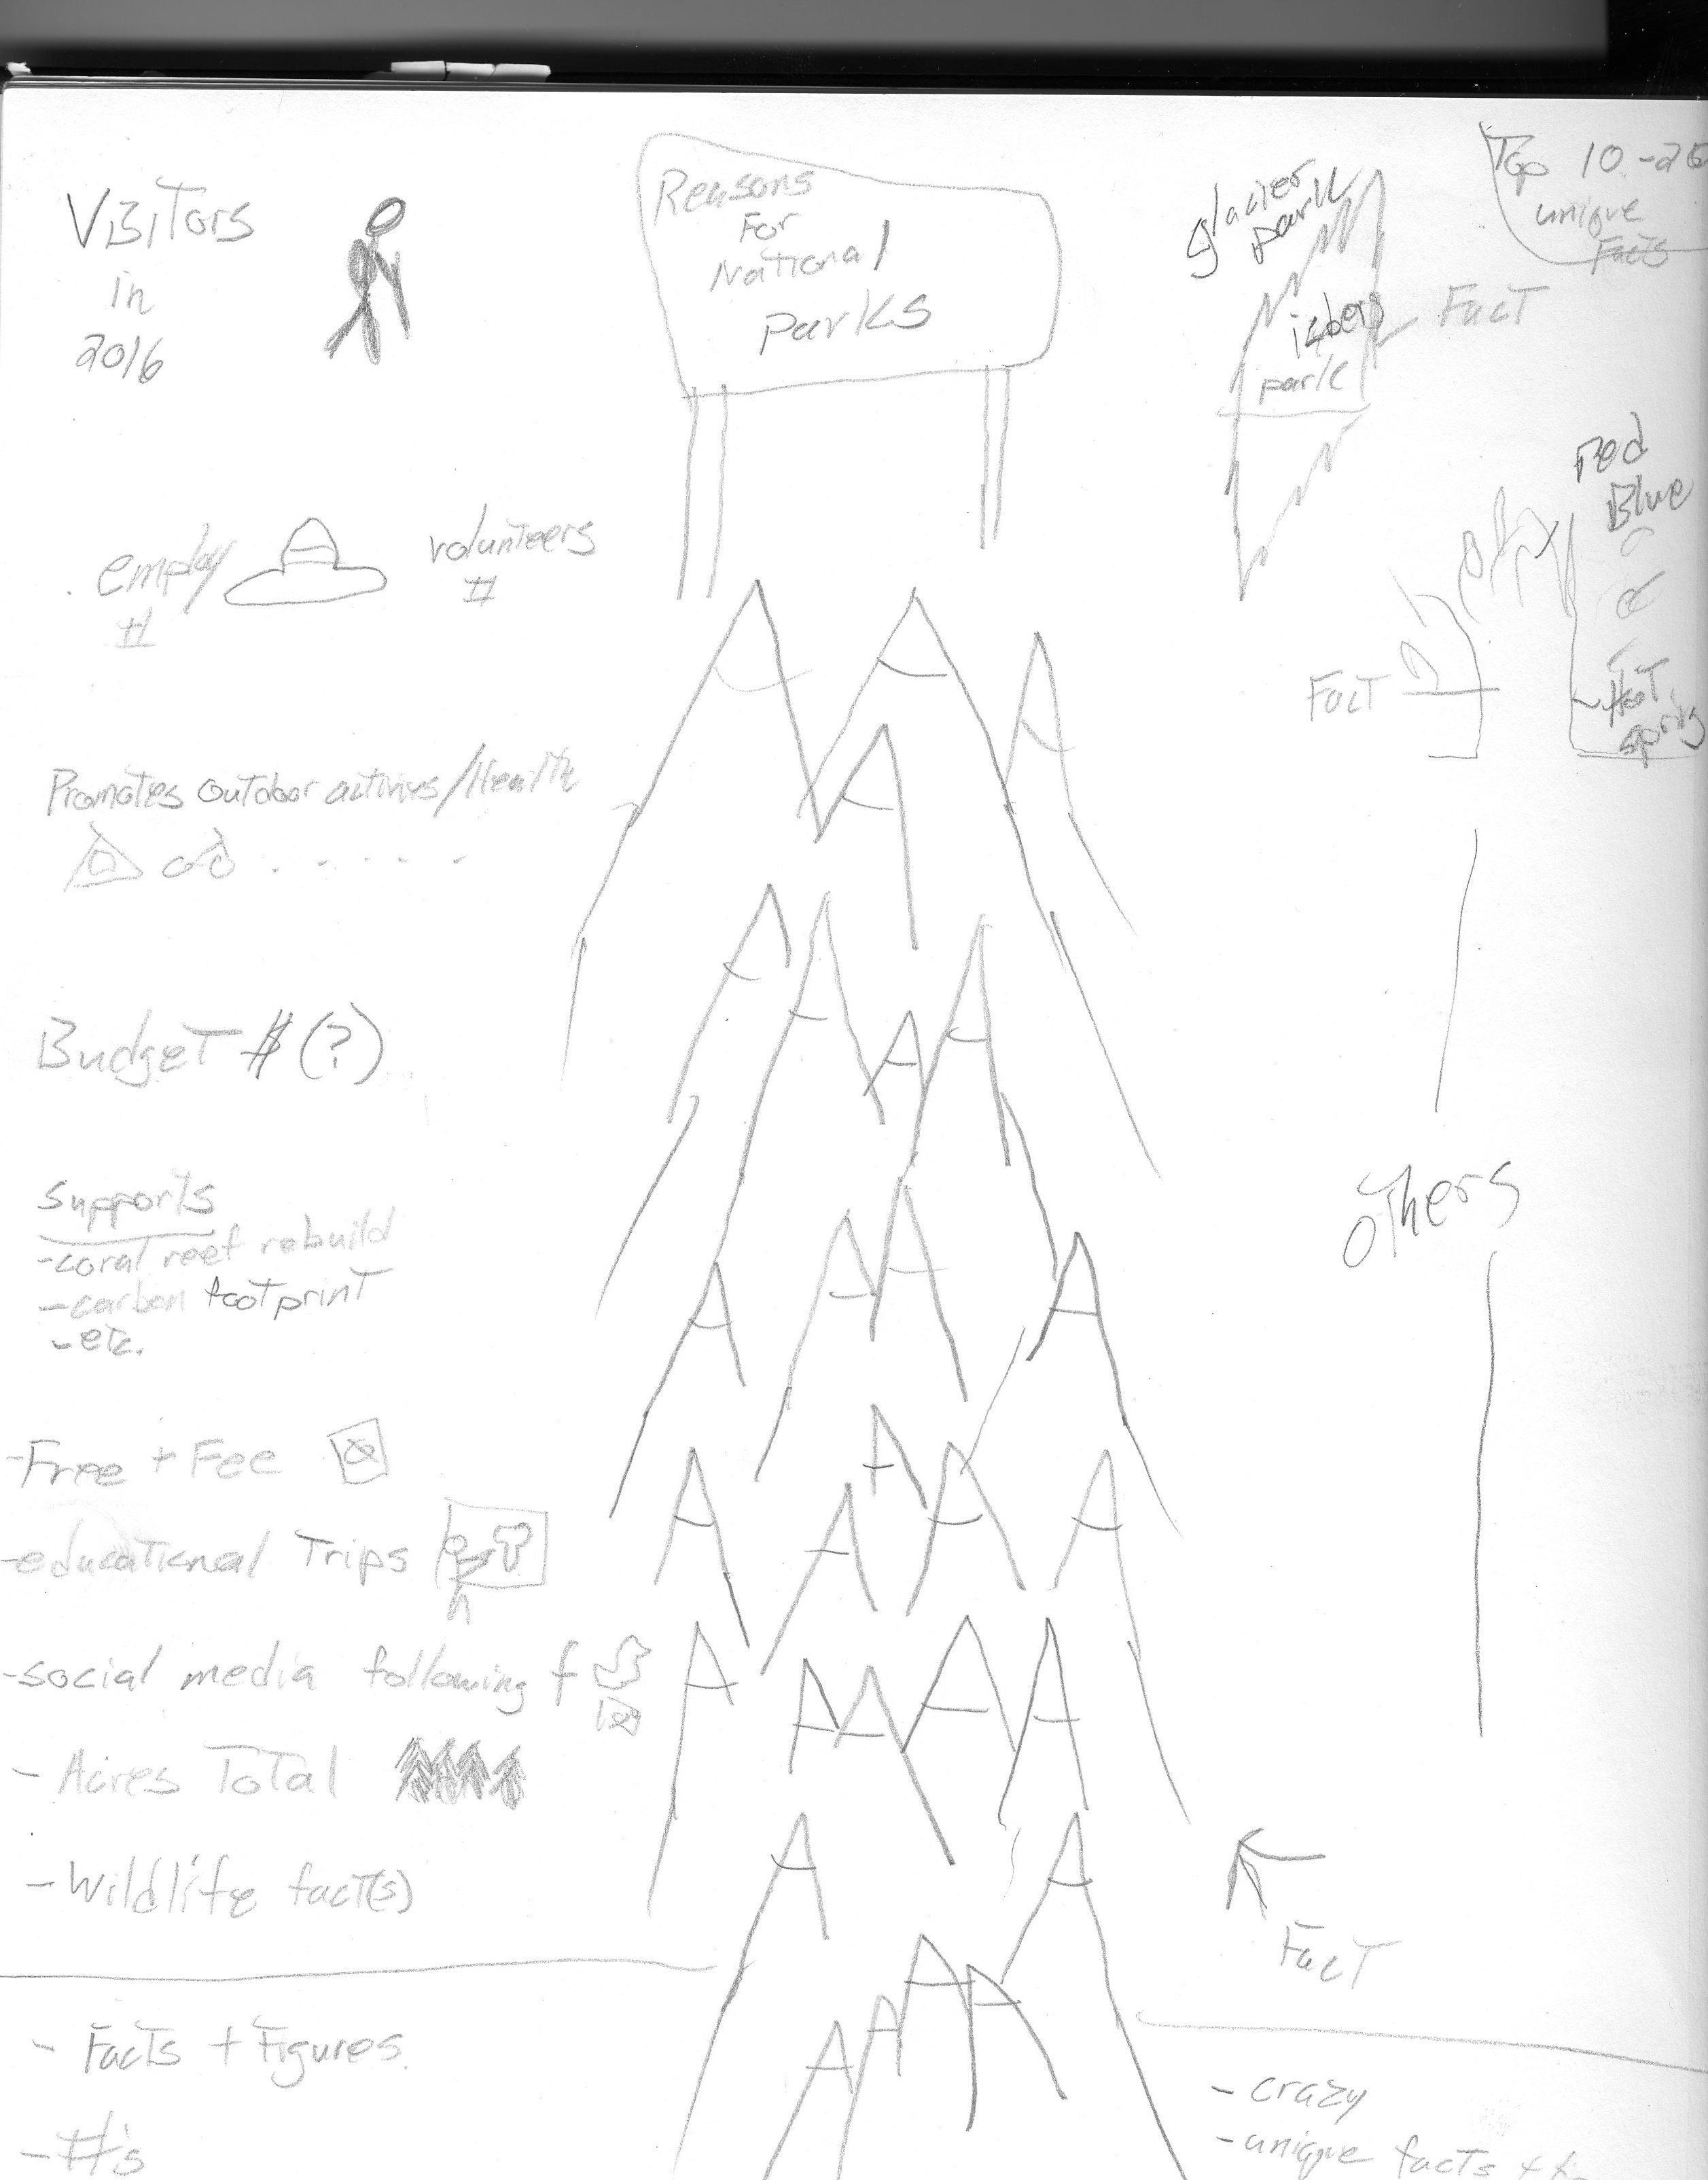 Visitors
in
2016
Reasons
For
National
parks
glacier
park
iceberg
park
Fact
Top 10-25
unique
Facts
employ
#
volunteers
#
Red
Blue
Hot
spring
Fact
Promotes outdoor activies/Health
Budget $ (?)
supports
-coral reef rebuild
-carbon footprint
-etc.
others
-Free + Fee
-educational Trips
-social media following f
- Acres Total
- Wildlife fact(s)
Fact
- Facts + Figures
- #'s
- crazy
- unique facts